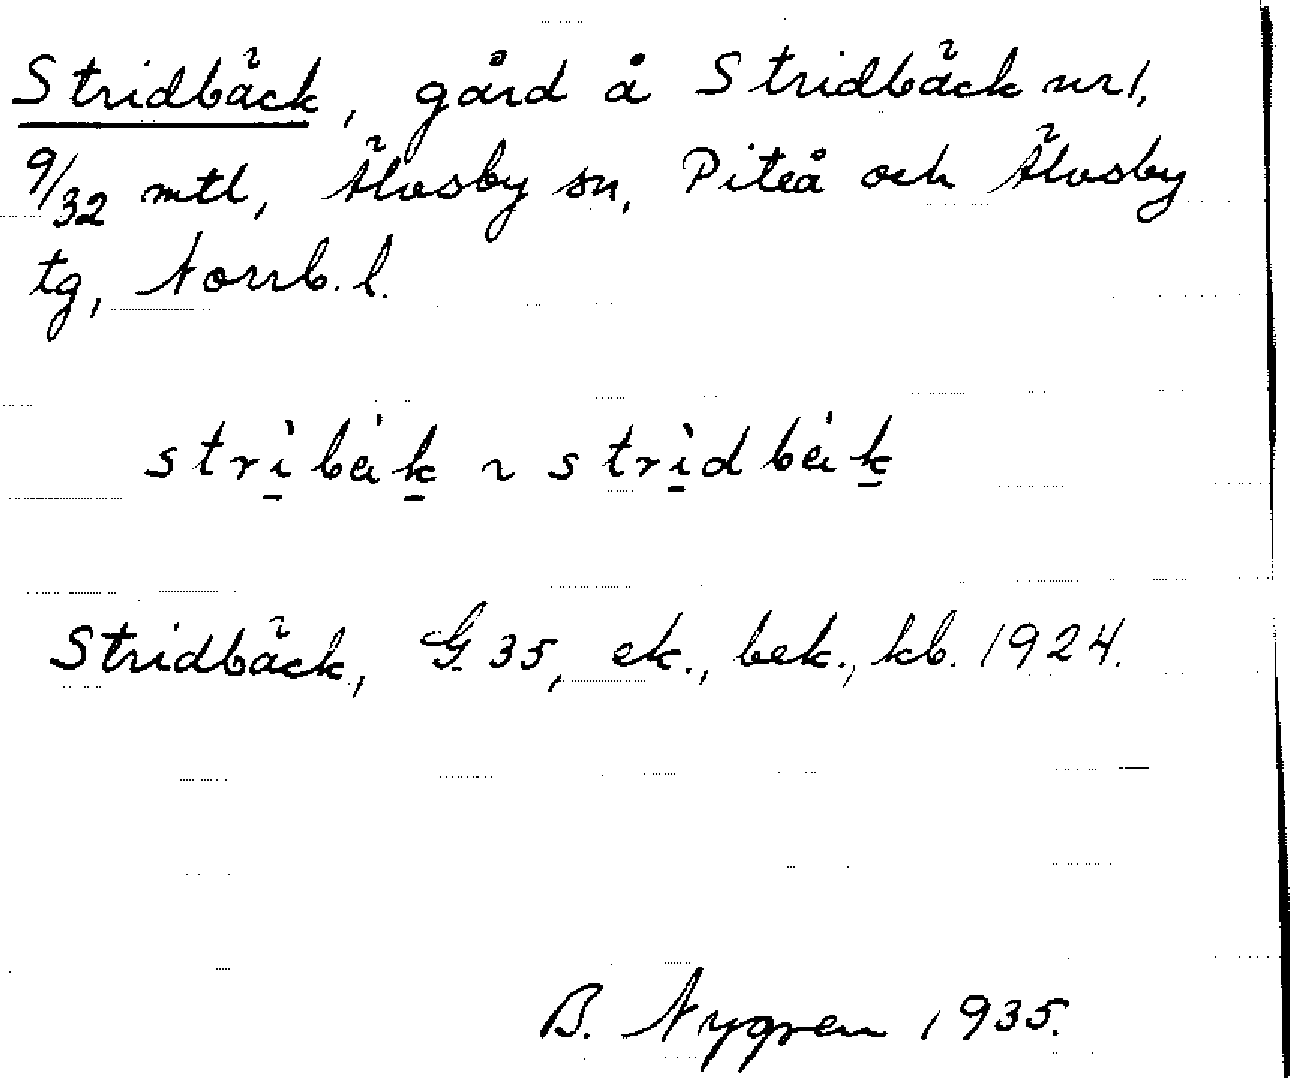 Stridbäck, gård å Stridbäck nr 1,
9/32 mtl, Älvsby sn, Piteå och Älvsby
tg, Norrb. l.
stri̠̇̀bäk̠ ~ strì̠dbäk̠
Stridbäck, G. 35, ek., bek., kb. 1924.
B. Nygren 1935.